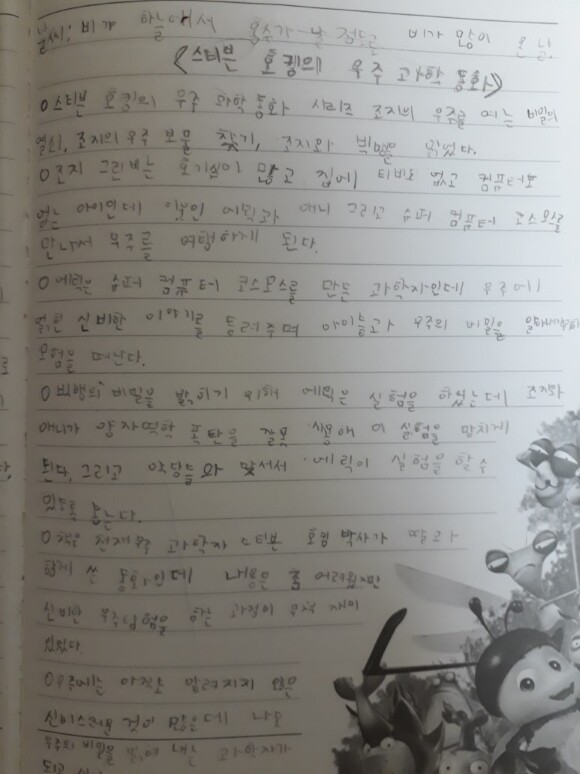 날씨: 비가 하늘에서 홍수가 난 점도로 비가 많이 온 날.
<스티븐 호킹의 우주 과학 동화>
○스티븐 호킹의 우주 과학 동화 시리즈 조지의 우주를 여는 비밀의
열쇠, 조지의 우주 보물 찾기, 조지와 빅뱅을 읽었다.
○조지 그린비는 호기심이 많고 집에 티비도 없고 컴퓨터도
없는 아이인데 이웃인 에릭과 애니 그리고 슈퍼 컴퓨터 코스모스를
만나서 우주를 여행하게 된다.
○에릭은 슈퍼 컴퓨터 코스모스를 만든 과학자인데 우주에
얽힌 신비한 이야기를 들려주며 아이들과 우주의 비밀을
모험을 떠난다.
○빅뱅의 비밀을 밝히기 위해 에릭은 실험을 하였는데 조지와
애니가 양자역학 폭탄을 잘못 사용해 이 실험을 망치게
된다. 그리고 악당들와 맞서서 에릭이 실험을 할 수
있도록 돕는다.
○책은 천재우주 과학자 스티븐 호킹 박사가 딸과
함께 쓴 동화인데 내용은 좀 어려웠지만
신비한 우주탐험을 하는 과정이 무척 재미
있었다.
○우주에는 아직도 알려지지 않은
신비스러운 것이 많은데 나도
우주의 비밀을 밝혀 내는 과학자가
되고